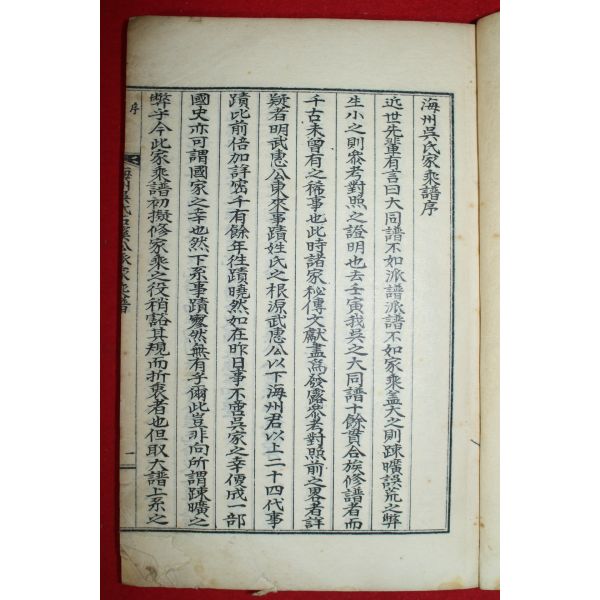 海州吳氏家乘譜序
近世先輩有言曰大同譜不如派譜派譜不如家乘盖大之則踈曠誤荒之弊
生小之則叅考對照之證明也去壬寅我吳之大同譜十餘貫合族修譜者而
千古未曾有之稀事也此時諸家秘傳文獻盡爲發露叅考對照前之畧者詳
疑者明武惠公東來事蹟姓氏之根源武惠公以下海州君以上二十四代事
蹟比前倍加詳密千有餘年徃蹟曉然如在昨日事不啻吳家之幸便成一部
國史亦可謂國家之幸也然下系事蹟寥然無有乎爾此豈非向所謂踈曠之
弊乎今此家乘譜初擬修家乘之役稍豁其規而折衷者也但取大譜上系之
序
海州吳氏 公派家乘譜
一